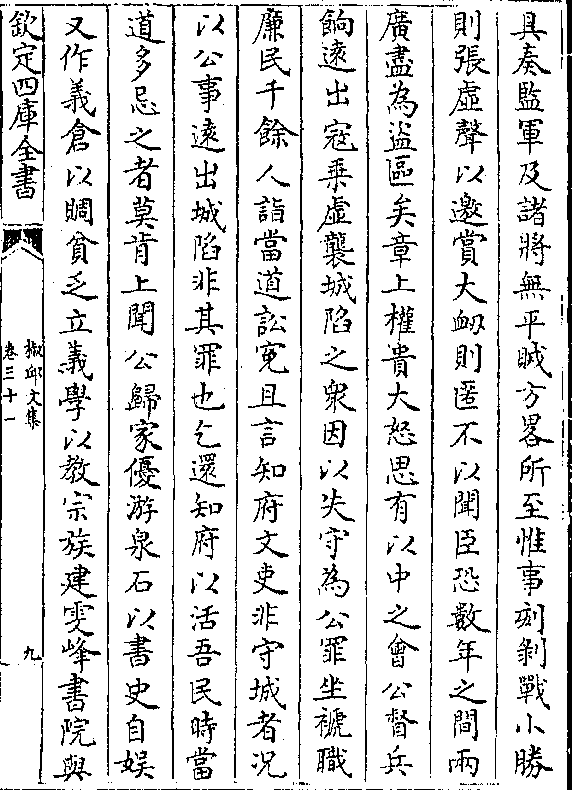 具奏監軍及諸將無平賊方畧所至惟事刻剝戰小勝
則張虛聲以邀賞大衂則匿不以聞臣恐數年之間兩
廣盡為盜區矣章上權貴大怒思有以中之會公督兵
餉遠出寇乗虛襲城陷之衆因以失守為公罪坐褫職
亷民千餘人詣當道訟寃且言知府文吏非守城者况
以公事遠出城陷非其罪也乞還知府以活吾民時當
道多忌之者莫肯上聞公歸家優游泉石以書史自娱
又作義倉以賙貧乏立義學以教宗族建雯峰書院與
欽定四庫全書
椒邱文集
卷三十一
九